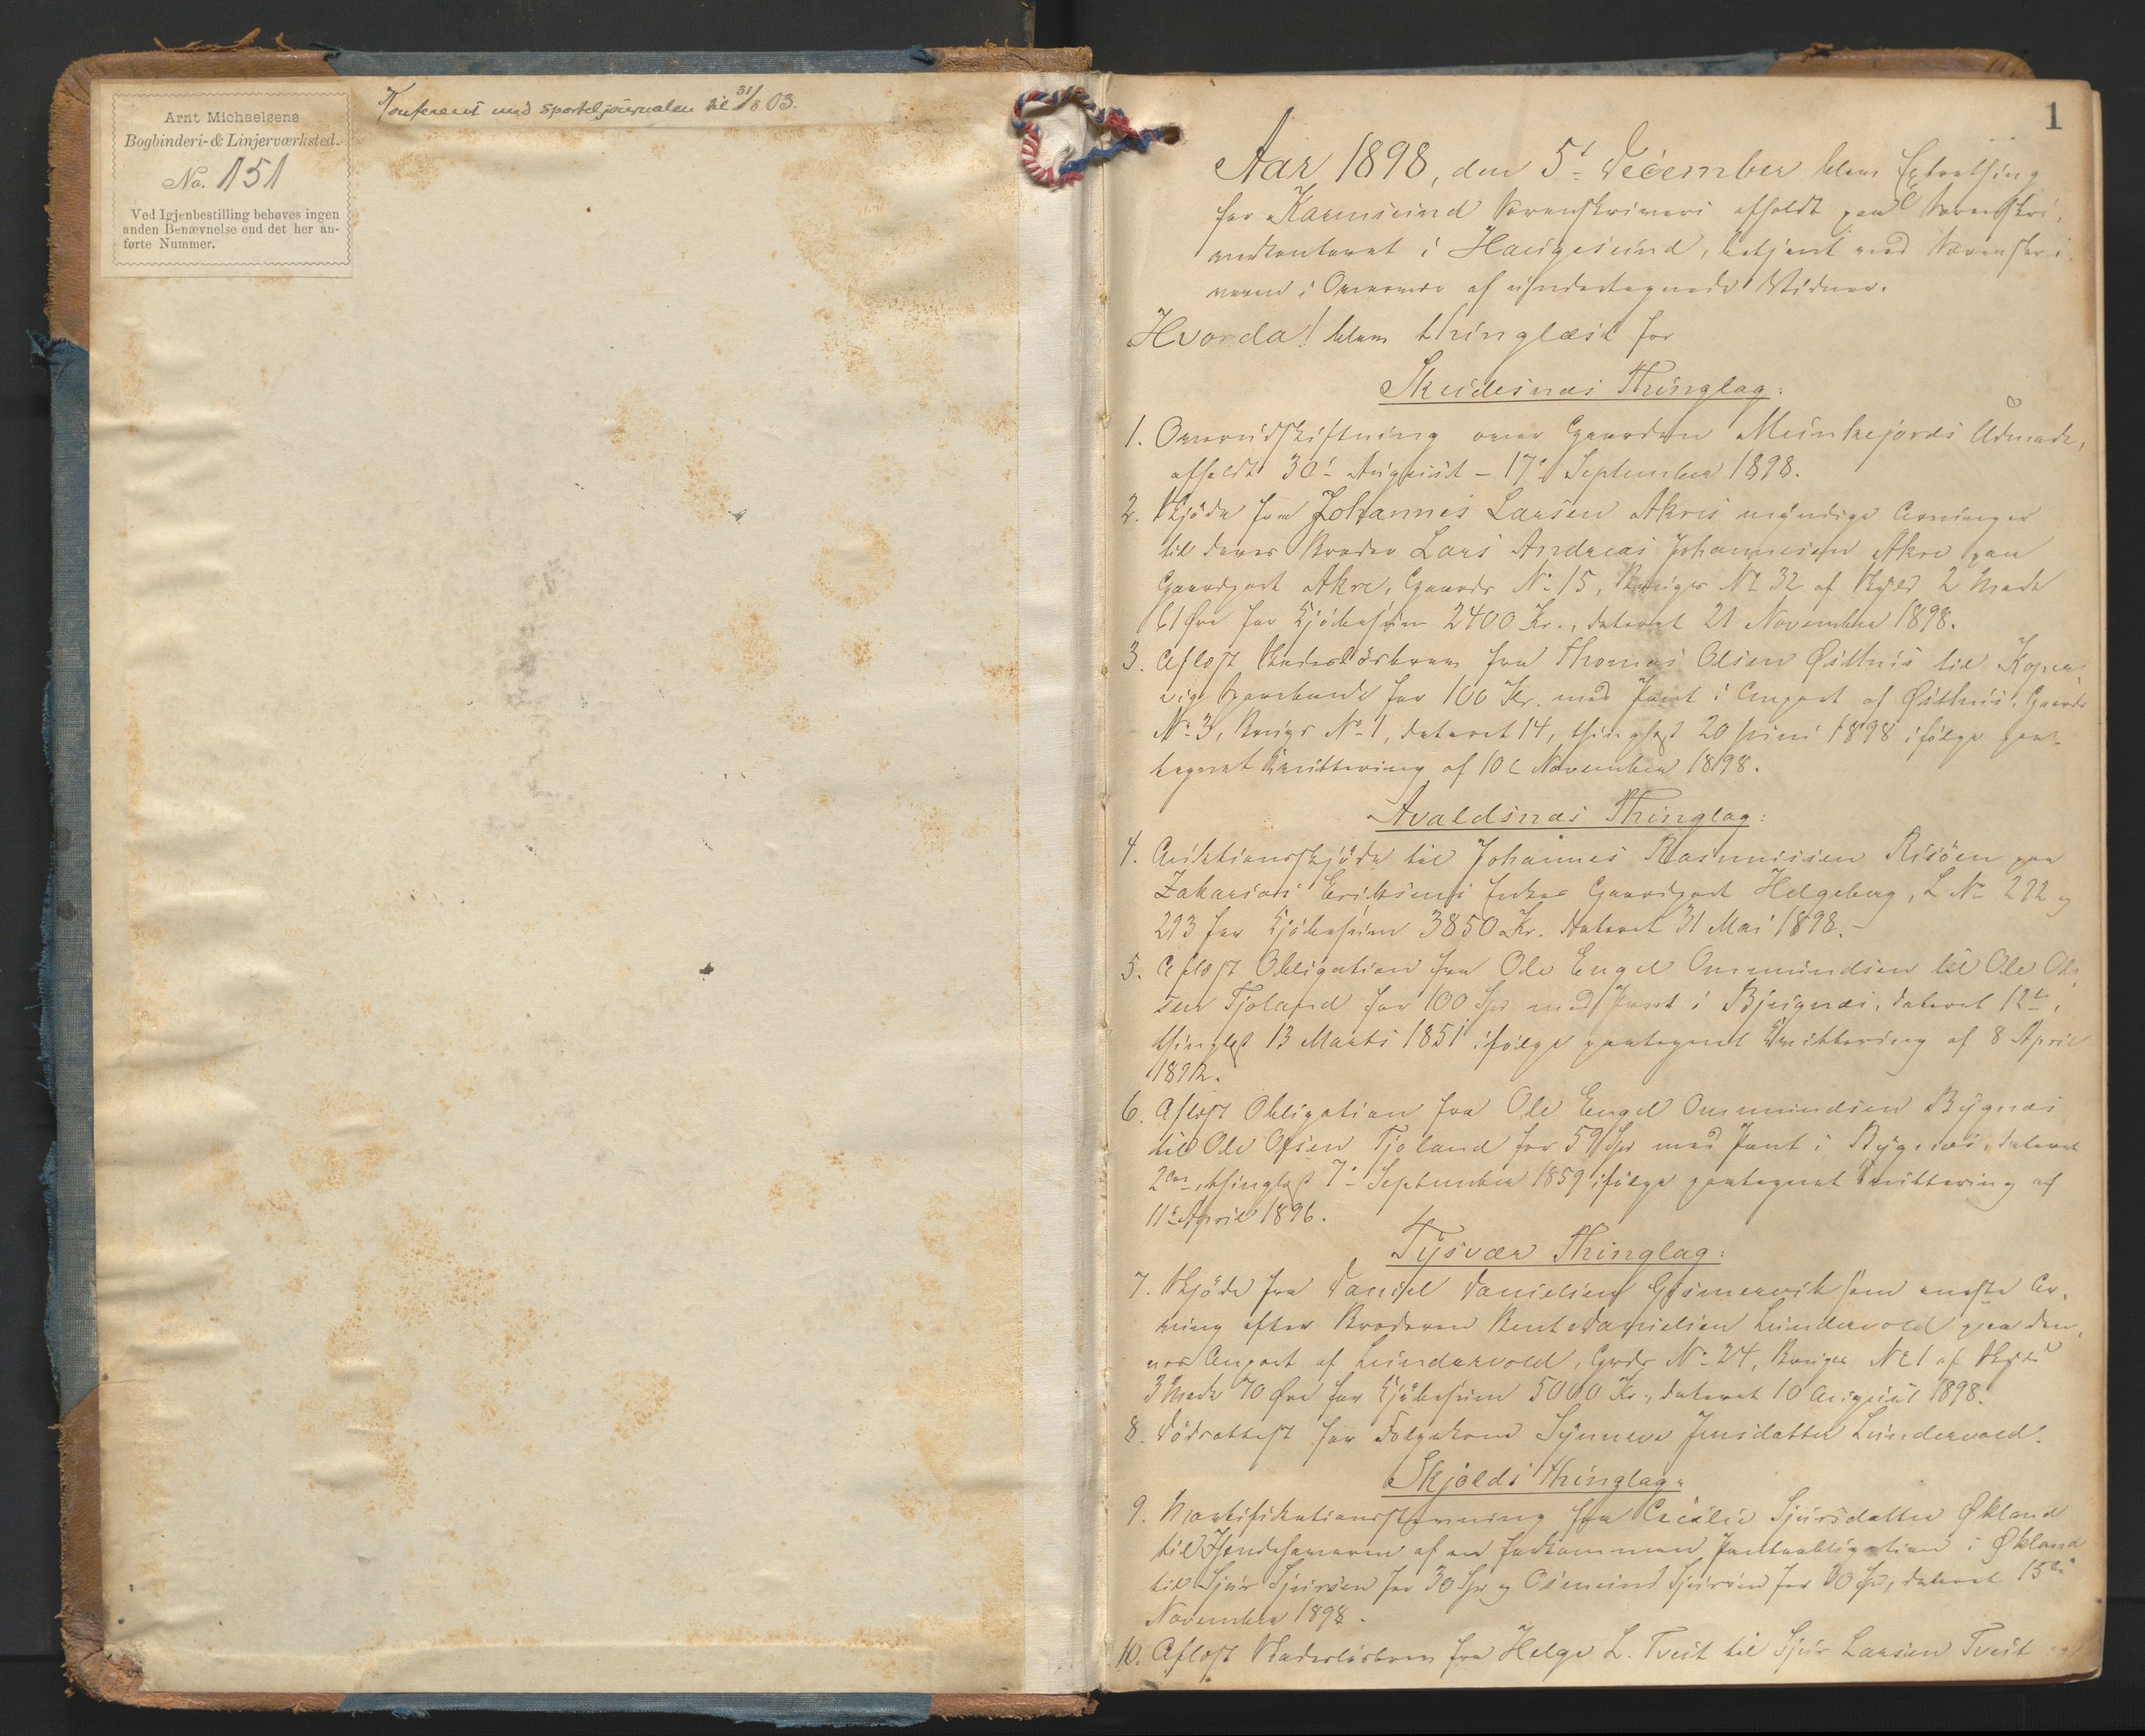 Arnt Michaelsens
Bogbinderi- & Linjerværksted.
No. 151
Ved Igjenbestilling behøves ingen
anden Benævnelse end det her an-
førte Nummer.
Konfereret med sporteljournalen til 31/8 03.
1
Aar 1898, den 5t December blev Extrathing
for Karmsund Sorenskriveri afholdt paa Sorenskri-
verkontoret i Haugesund, betjent med Sorenskri-
veren i Overvær af undertegnede Vidner.
Hvorda! blev thinglæst for
Skudesnæs Thinglag:
1. Overudskiftning over Gaarden Munkejords Udmark,
afholdt 30t August - 17t September 1898.
2. Skjöde fra Johannes Larsen Akres myndige Arvinger
til deres Broder Lars Andreas Johannesen Akre paa
Gaardpart Akre, Gaards No 15, Brugs No 32 af Skyld 2 Mark
61 Øre for Kjöbesum 2400 Kr., dateret 21 November 1898.
3. Aflæst Skadeslösbrev fra Thomas Olsen Østhus til Koper-
vig Sparebank for 100 Kr. med Pant i Anpart af Østhus, Gaards
No 3, Brugs No 1, dateret 14, thinglæst 20 Juni 1898 ifölge paa-
tegnet Kvittering af 10t November 1898.
Avaldsnæs Thinglag:
4. Auktionsskjöde til Johannes Rasmussen Risöen paa
Zakarias Eriksens Enkes Gaardpart Helgeberg, L No 292 og
293 for Kjöbesum 3850 Kr. dateret 31 Mai 1898.
5. Aflæst Obligation fra Ole Engel Ommundsen til Ole Ol-
sen Tjoland for 100 Spd med Pant i Bjugnæs, dateret 12t,
thinglæst 13 Marts 1851 ifölge paategnet Kvittering af 8 April
1892.
6. Aflæst Obligation fra Ole Engel Ommundsen Bygnæs
til Ole Olsen Tjoland for 59 Spd med Pant i Bygnæs, dateret
2den, thinglæst 7t September 1859 ifölge paategnet Kvittering af
11t April 1896.
Tysvær Thinglag:
7. Skjöde fra Daniel Danielsen Gismervik som eneste Ar-
ving efter Broderen Bent Danielsen Lundervold paa den-
nes Anpart af Lundervold, Gards No 24, Brugs No 1 af Skyld
3 Mark 70 Øre for Kjöbesum 5000 Kr., dateret 10 August 1898.
8. Dödsattest for Folgekone Synneve Jensdatter Lundervold.
Skjolds Thinglag:
9. Mortifikationsstevning fra Cecilie Sjursdatter Økland
til Ihændehaveren af en forkommen Panteobligation i Økland
til Sjur Sjursen for 30 Spd og Osmund Sjursen for Spd, dateret 15de
November 1898.
10. Aflæst Skadeslösbrev fra Helge L. Tveit til Sjur Larsen Tveit